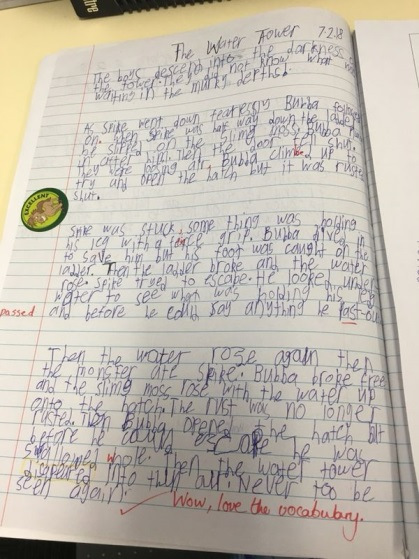 The Water Tower 7-2-18
The boys descend into the darkness of
the tower. They did not know what was
waiting in the murky depths.
As Spike went down fearlessly Bubba followed
on. When Spike was half way down the ladder
on the slimy moss, Bubba
in after him. Then the door fell shut.
They were losing air, Bubba climbed up to
try and open the hatch but it was rusted
shut.
EXCELLENT
Spike was stuck, some thing was holding
his leg with a grip. Bubba dived in
to save him but his foot was caught on the
ladder. Then the ladder broke and the water
rose. Spike tryed to escape. He looked under
water to see what was holding his leg
passed
and before he could say anything he past out
Then the water rose again then
the monster ate Spike. Bubba broke free
and the slimy moss rose with the water up
onto the hatch. The rust was no longer
rusted. Then Bubba opened the hatch but
before he could escape he was
whole. Then the water tower
into thin air. Never too be
seen again.
Wow, love the vocabulary.